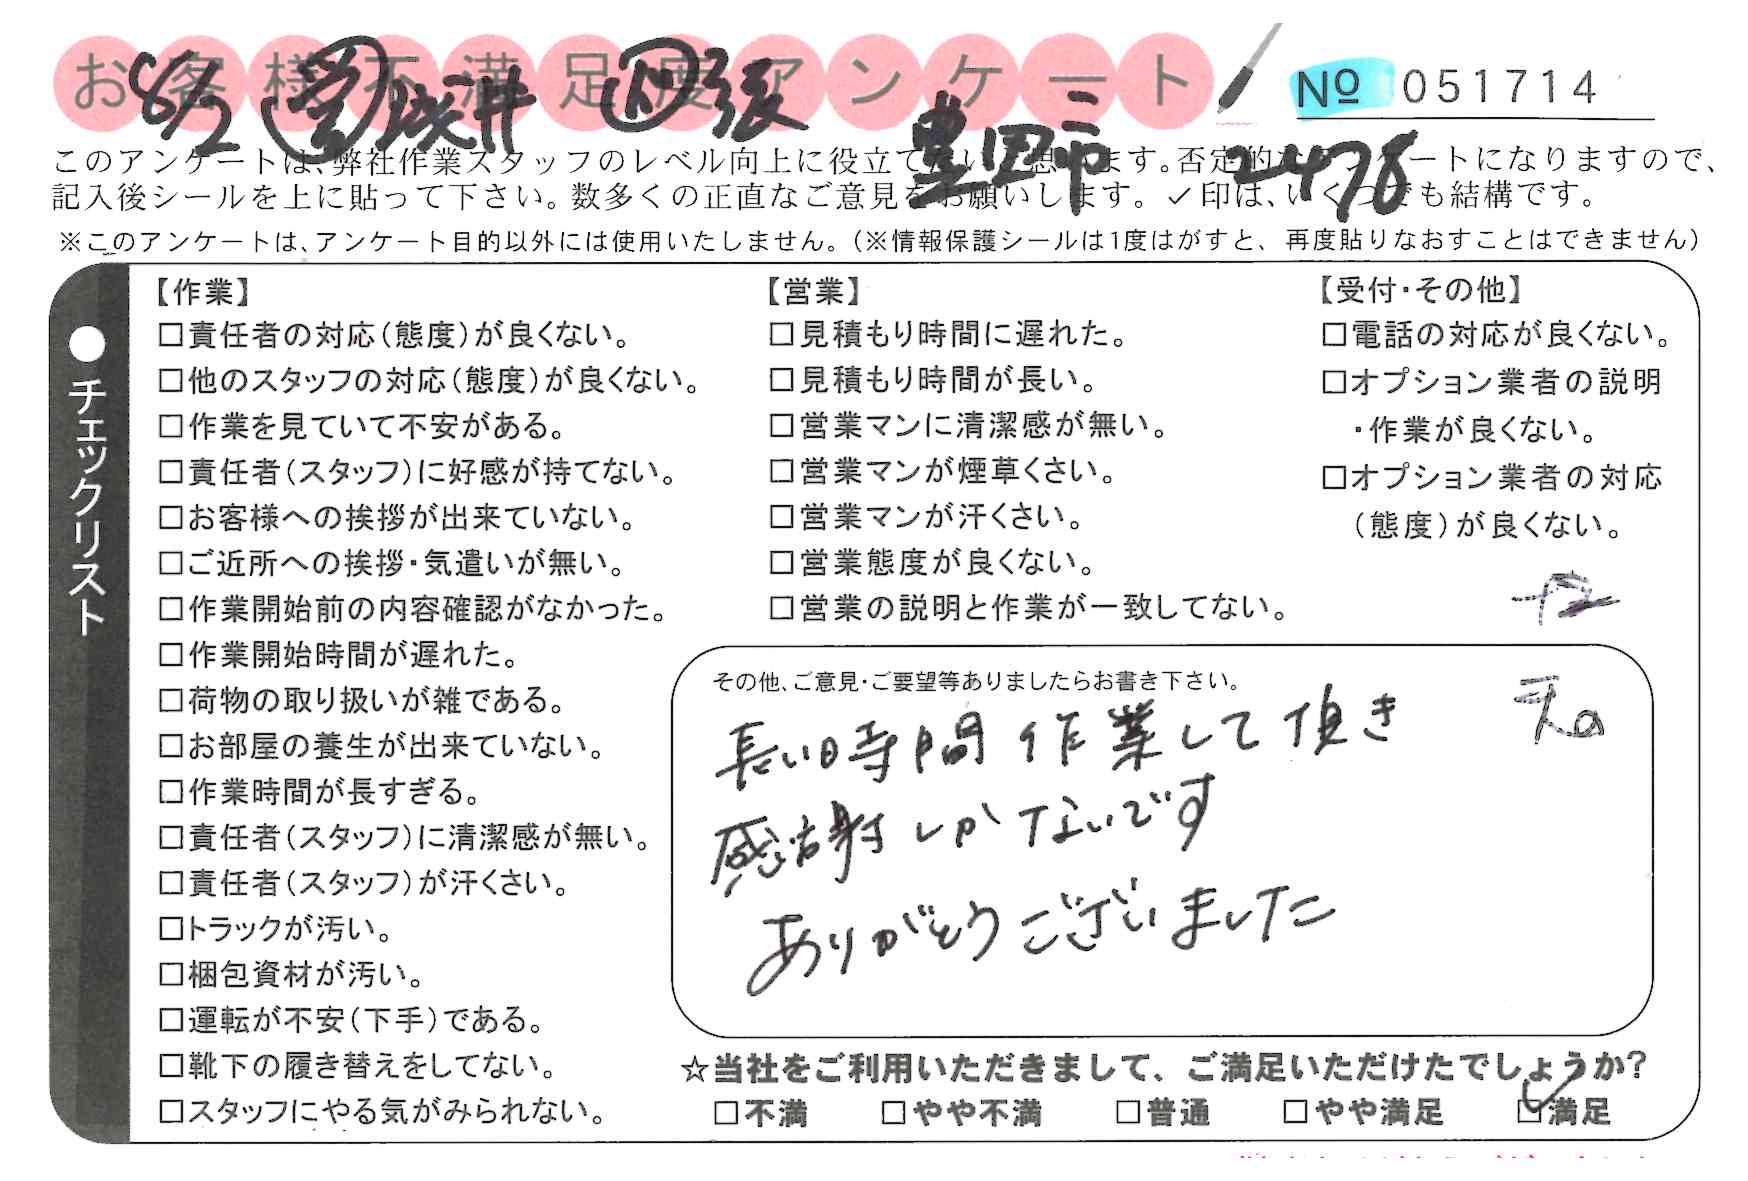 お客様不満足度アンケート
8/2 営 浅井 印 張
№ 051714
豊田市 2478
このアンケートは、弊社作業スタッフのレベル向上に役立てたいと思います。否定的なアンケートになりますので、
記入後シールを上に貼って下さい。数多くの正直なご意見をお願いします。✓印は、いくつでも結構です。
※このアンケートは、アンケート目的以外には使用いたしません。（※情報保護シールは1度はがすと、再度貼りなおすことはできません）
●チェックリスト
【作業】
□責任者の対応（態度）が良くない。
□他のスタッフの対応（態度）が良くない。
□作業を見ていて不安がある。
□責任者（スタッフ）に好感が持てない。
□お客様への挨拶が出来ていない。
□ご近所への挨拶・気遣いが無い。
□作業開始前の内容確認がなかった。
□作業開始時間が遅れた。
□荷物の取り扱いが雑である。
□お部屋の養生が出来ていない。
□作業時間が長すぎる。
□責任者（スタッフ）に清潔感が無い。
□責任者（スタッフ）が汗くさい。
□トラックが汚い。
□梱包資材が汚い。
□運転が不安（下手）である。
□靴下の履き替えをしてない。
□スタッフにやる気がみられない。
【営業】
□見積もり時間に遅れた。
□見積もり時間が長い。
□営業マンに清潔感が無い。
□営業マンが煙草くさい。
□営業マンが汗くさい。
□営業態度が良くない。
□営業の説明と作業が一致してない。
【受付・その他】
□電話の対応が良くない。
□オプション業者の説明
・作業が良くない。
□オプション業者の対応
（態度）が良くない。
その他、ご意見・ご要望等ありましたらお書き下さい。
長い時間作業して頂き
感謝しかないです
ありがとうございました
☆当社をご利用いただきまして、ご満足いただけたでしょうか?
□不満 □やや不満 □普通 □やや満足 ☑満足